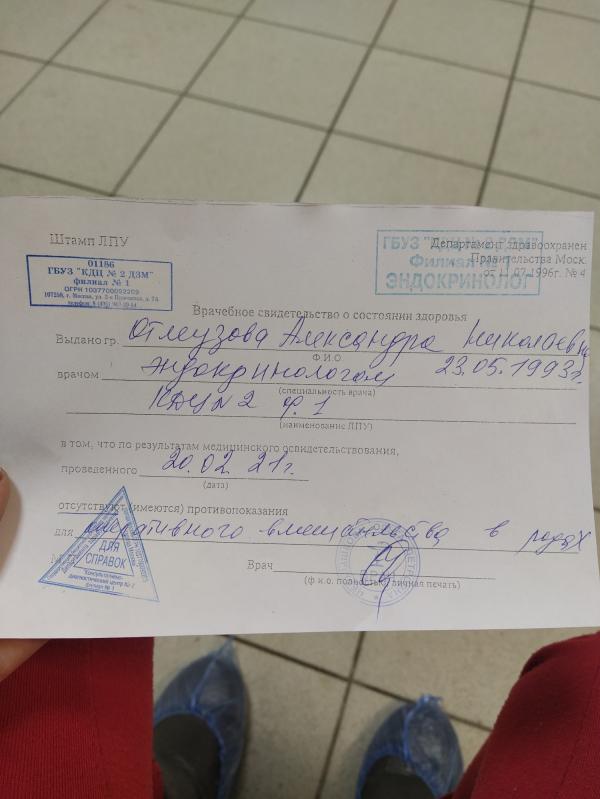 Штамп ЛПУ
01186
ГБУЗ "КДЦ № 2 ДЗМ"
филиал № 1
ОГРН 1037700092209
107258, г. Москва, ул. 2-я
ГБУЗ "КДЦ № 2 ДЗМ"
Филиал № 1
ЭНДОКРИНОЛОГ
Департамент здравоохранен
Правительства Моск.
от 11.07.1996г. № 4
Врачебное свидетельство о состоянии здоровья
Выдано гр. Отмеузова Александра Николаевна
Ф.И.О
врачом эндокринологом 23.05.1993г.
(специальность врача)
КДЦ№2 ф.1
(наименование ЛПУ)
в том, что по результатам медицинского освидетельствования,
проведенного 20.02 21г.
(дата)
отсутствуют (имеются) противопоказания
для оперативного вмешательства в родах
ДЛЯ
СПРАВОК
Консультативно-
диагностический центр № 2
филиал № 1
Врач
(ф и.о. полностью, личная печать)